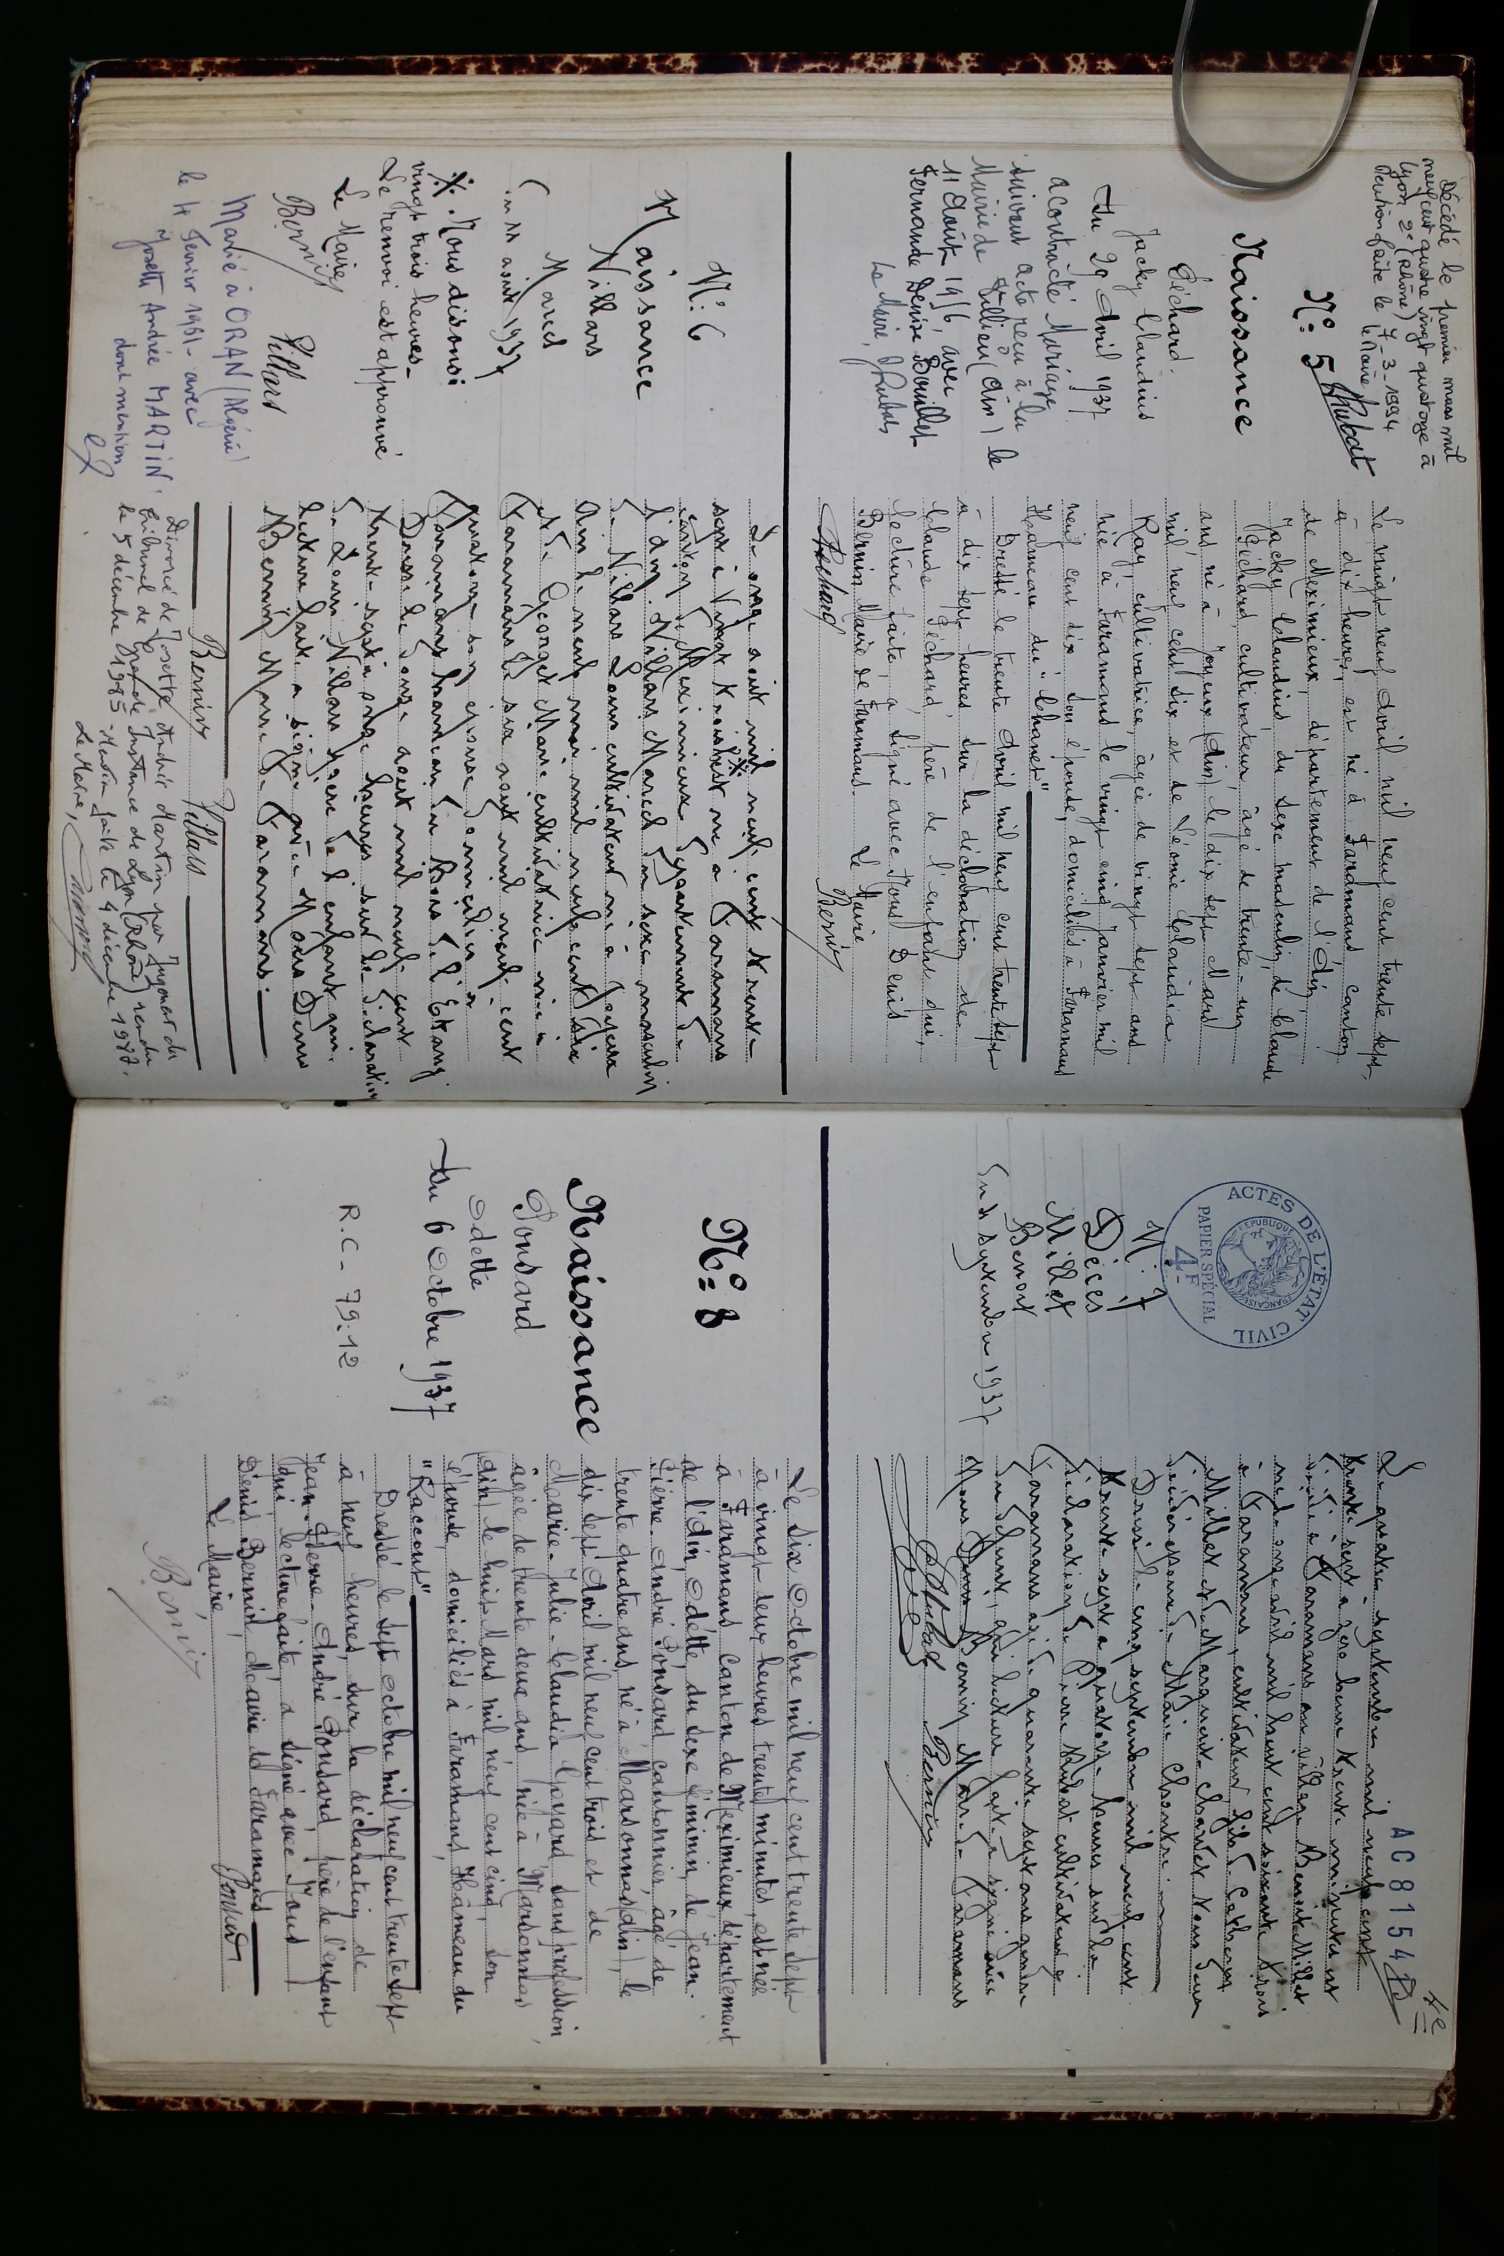 Décédé le premier mars mil
neuf cent quatre vingt quatorze à
Lyon 2e (Rhône)
Mention faite le 7-3-1994
le Maire
N° 5
Naissance
Péchard
Jacky Claudius
Du 29 Avril 1937
a contracté Mariage
suivant acte reçu à la
Mairie de Villieu (Ain) le
11 Août 1956, avec
Fernande Denise Bouillet
Le Maire,
Le vingt neuf Avril mil neuf cent trente sept
à dix heures, est né à Faramans canton
de Meximieux, département de l'Ain,
Jacky Claudius du sexe masculin, de Claude
Péchard, cultivateur, âgé de trente-un
ans, né à Joyeux (Ain) le dix sept Mars
mil neuf cent six et de Léonie Claudia
Ray, cultivatrice, âgée de vingt sept ans
née à Faramans le vingt cinq Janvier mil
neuf cent dix son épouse, domiciliés à Faramans
Hameau du "Chanet"
Dressé le trente Avril mil neuf cent trente sept
à dix sept heures sur la déclaration de
Claude Péchard, père de l'enfant qui,
lecture faite, a signé avec Nous Denis
Bernin Maire de Faramans. Le Maire
Péchard Bernin
N° 6
Naissance
Villars
Marcel
Du 11 août 1937
※. Nous disons:
vingt trois heures-
Le renvoi est approuvé
Le Maire
Bernin Villars
Marié à ORAN (Algérie)
le 4 Février 1961 - avec
Josette Andrée MARTIN.
dont mention
Le onze août mil neuf cent trente-
sept à vingt trois ※ est né à Faramans
canton de Meximieux département de
l'Ain. Villars Marcel du sexe masculin
de Villars Louis cultivateur né à Joyeux
Ain le neuf mai mil neuf cent
et de Georget Marie cultivatrice née à
Faramans le six août mil neuf cent
quatorze son épouse domiciliés à
Faramans hameau du Bois de l'Etang.
Dressé le douze août mil neuf cent
trente-sept à onze heures sur la déclaration
de Louis Villars père de l'enfant qui,
lecture faite a signé avec Nous Denis
Bernin Maire de Faramans.
Bernin Villars
Divorcé de Josette, Andrée Martin par Jugement du
Tribunal de Grande Instance de Lyon (Rhône) rendu
le 5 décembre 1985 - Mention faite le 4 décembre 1987.
Le Maire,
ACTES DE L'ÉTAT CIVIL
RÉPUBLIQUE FRANÇAISE
PAPIER SPÉCIAL
4F
AC 8154
4e
N° 7
Décès
Millet
Benoit
Du 4 septembre 1937
Le quatre septembre mil neuf cent
trente sept à zéro heure trente minutes est
décédé à Faramans au village Benoit Millet
né le onze avril mil huit cent soixante trois
à Faramans, cultivateur, fils de
Millet et de Marguerite Charvet tous deux
décédés époux de Marie
Dressé le cinq septembre mil neuf cent
trente-sept à quatorze heures sur la
déclaration de Pierre Rubat cultivateur à
Faramans âgé de quarante sept ans gendre
du défunt, qui lecture faite a signé avec
Nous Denis Bernin Maire de Faramans
Rubat Bernin
N° 8
Naissance
Ponsard
Odette
Du 6 Octobre 1937
R.C - 79.12
Le six Octobre mil neuf cent trente sept
à vingt deux heures trente minutes, est née
à Faramans canton de Meximieux département
de l'Ain, Odette, du sexe féminin, de Jean.
Pierre. André Ponsard cantonnier, âgé de
trente quatre ans, né à Marsonnas (Ain), le
dix sept Avril mil neuf cent trois et de
Marie. Julie. Claudia Goyard sans profession
âgée de trente deux ans née à Marsonnas
(Ain) le huit Mars mil neuf cent cinq, son
épouse, domiciliés à Faramans, Hameau du
"Raccourt"
Dressé le sept Octobre mil neuf cent trente sept
à neuf heures, sur la déclaration de
Jean. Pierre. André Ponsard, père de l'enfant
qui lecture faite a signé avec Nous
Denis Bernin Maire de Faramans
Le Maire, Ponsard
Bernin